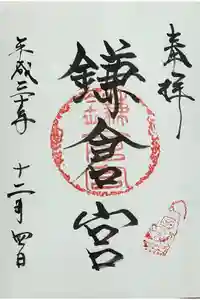 奉拝
鎌倉宮
平成三十年
十二月四日